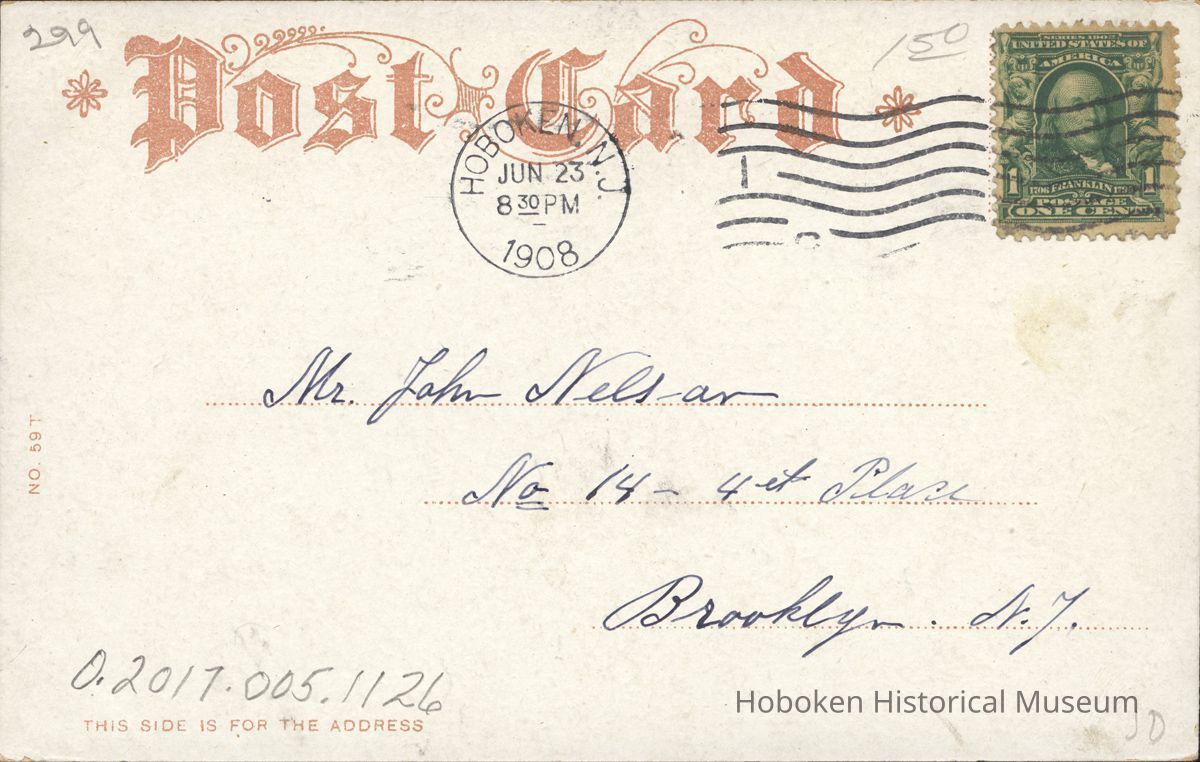 299
Post Card
150
SERIES 1902
UNITED STATES OF
AMERICA
1 1706 FRANKLIN 1790 1
POSTAGE
ONE CENT
HOBOKEN, N.J.
JUN 23
8 30 PM
1908
1
Mr. John Nelson
No 14 - 4et Place
Brooklyn. N.Y.
NO. 59T
O.2017.005.1126
THIS SIDE IS FOR THE ADDRESS
Hoboken Historical Museum